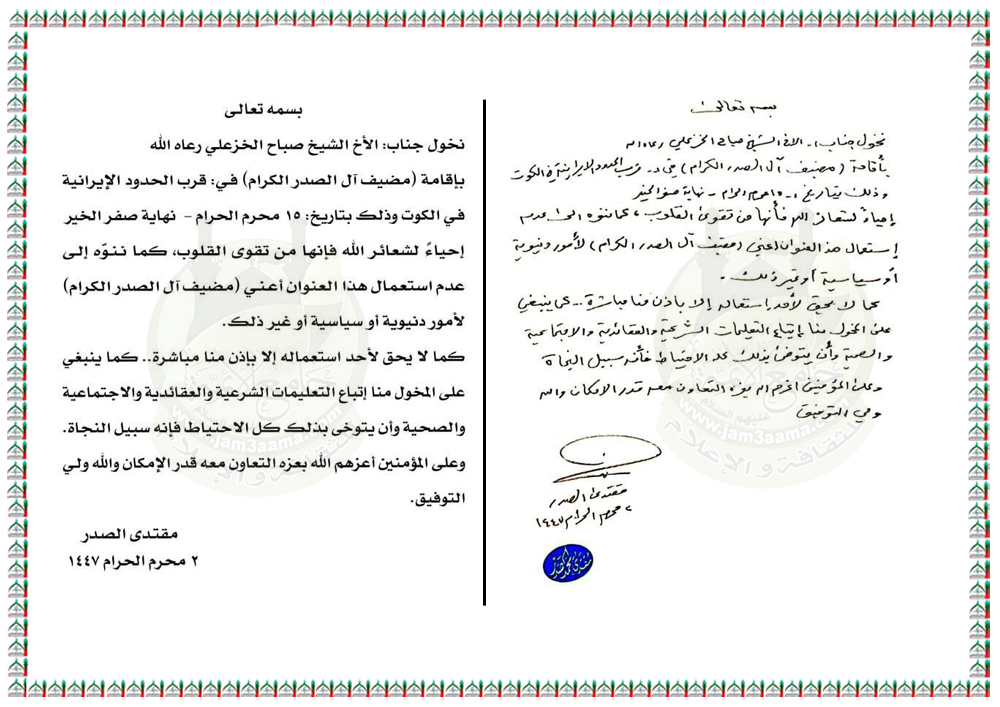 بسمه تعالى
نخول جناب :- الاخ الشيخ صباح الخزعلي رعاه الله
بأقامة (مضيف آل الصدر الكرام) في :- قرب الحدود الايرانية في الكوت
وذلك بتاريخ :- ١٥ محرم الحرام - نهاية صفر الخير
إحياءً لشعائر الله فأنها من تقوى القلوب ، كما ننوه الى عدم
إستعمال هذا العنوان اعني (مضيف آل الصدر الكرام) لأمور دنيوية
أو سياسية أو غير ذلك .
كما لا يحق لأحد إستعماله إلا بإذن منا مباشرة .. كما ينبغي
على المخول منا إتباع التعليمات الشرعية والعقائدية والاجتماعية
والصحية وأن يتوخى بذلك كل الاحتياط فأنه سبيل النجاة
وعلى المؤمنين اعزهم الله بعزه التعاون معه قدر الامكان والله
ولي التوفيق
مقتدى الصدر
٢ محرم الحرام ١٤٤٧
بسمه تعالى
نخول جناب: الأخ الشيخ صباح الخزعلي رعاه الله
بإقامة (مضيف آل الصدر الكرام) في: قرب الحدود الإيرانية
في الكوت وذلك بتاريخ: ١٥ محرم الحرام - نهاية صفر الخير
إحياءً لشعائر الله فإنها من تقوى القلوب، كما ننوّه إلى
عدم استعمال هذا العنوان أعني (مضيف آل الصدر الكرام)
لأمور دنيوية أو سياسية أو غير ذلك.
كما لا يحق لأحد استعماله إلا بإذن منا مباشرة.. كما ينبغي
على المخول منا إتباع التعليمات الشرعية والعقائدية والاجتماعية
والصحية وأن يتوخى بذلك كل الاحتياط فإنه سبيل النجاة.
وعلى المؤمنين أعزهم الله بعزه التعاون معه قدر الإمكان والله ولي
التوفيق.
مقتدى الصدر
٢ محرم الحرام ١٤٤٧
www.jam3aama.com
للثقافة و الإعلام